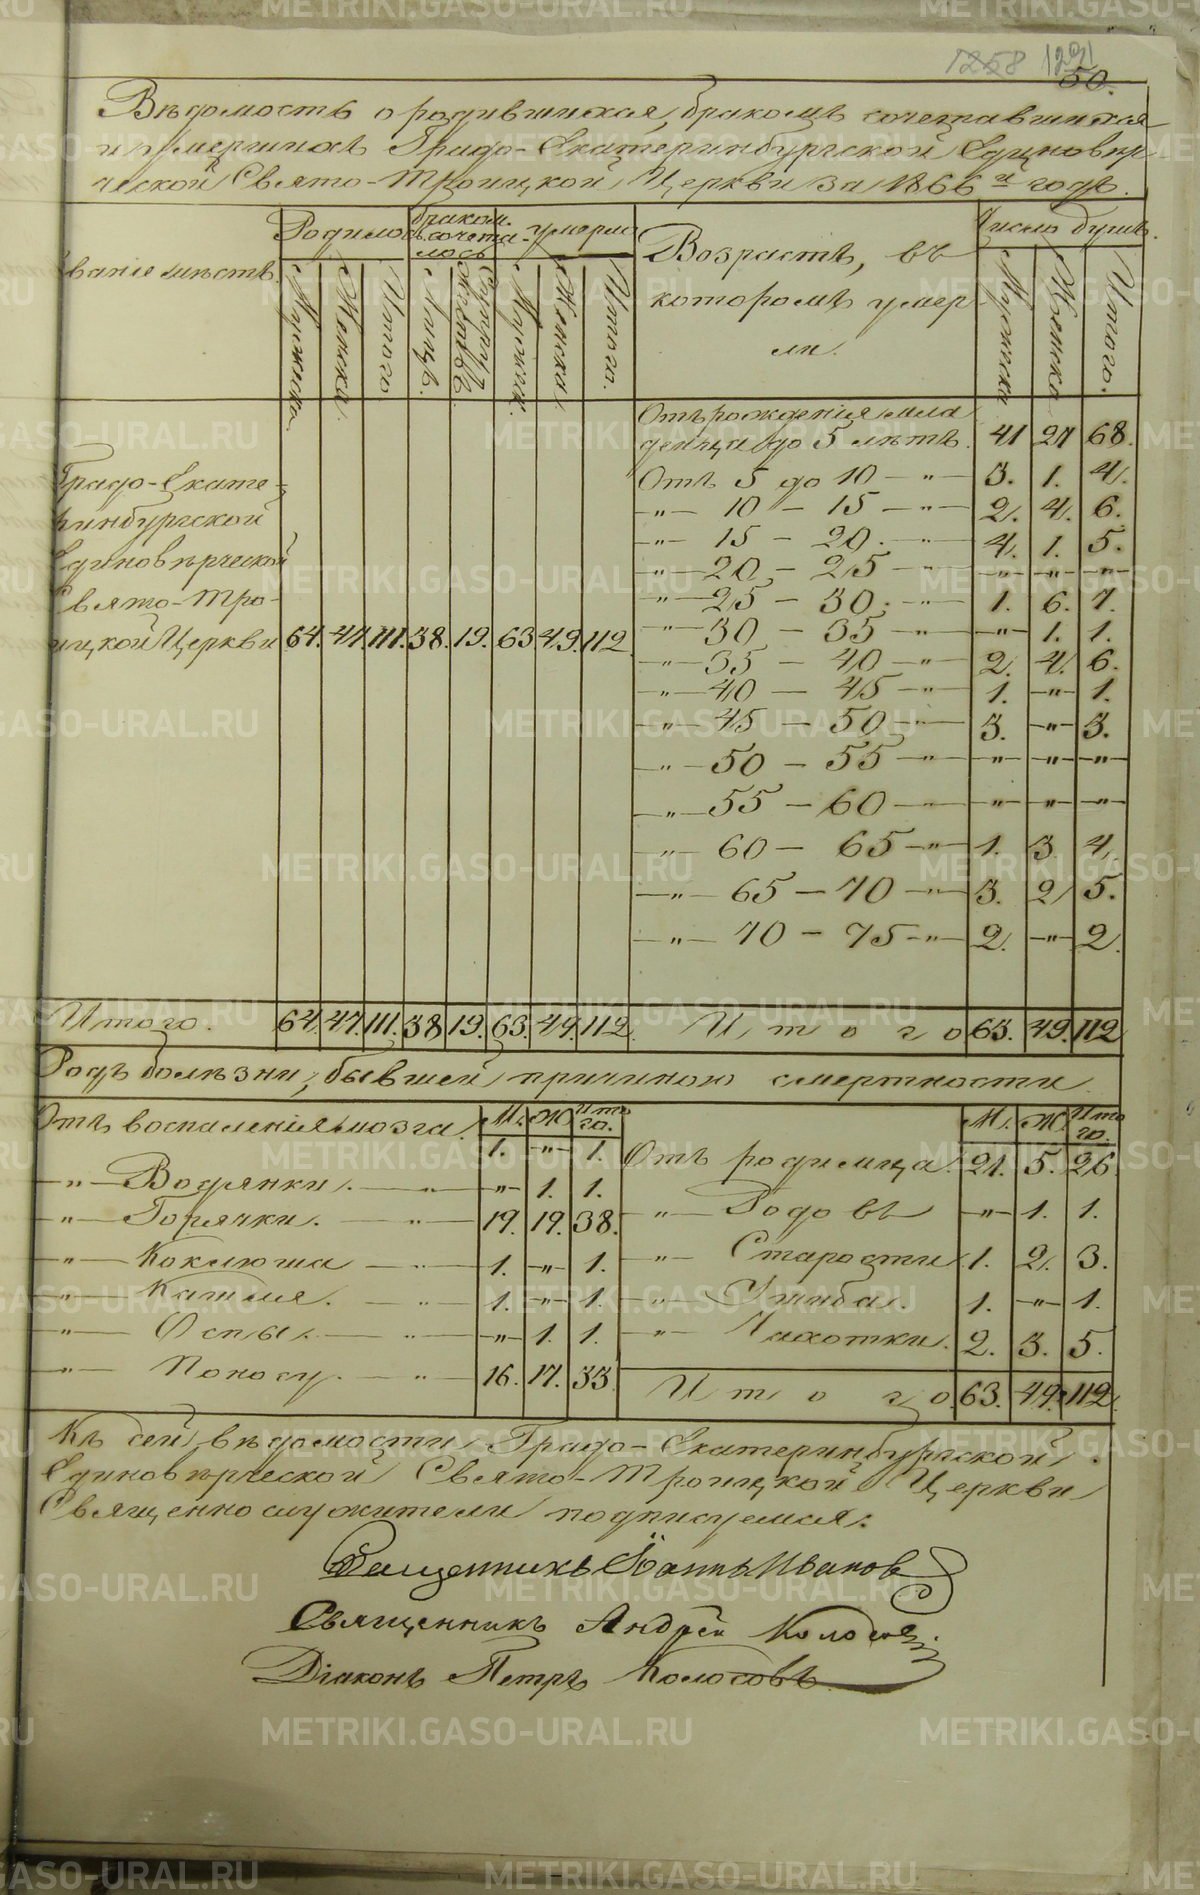 1258 1291
50.
Вѣдомость о родившихся, бракомъ сочетавшихся
и умершихъ Градо-Екатеринбургской Единовѣр-
ческой Свято-Троицкой Церкви за 1866й годъ.
Родилось
браком. сочета-лось
умерло
Возрастъ, въ
Число душъ.
званіе мѣстъ.
Мужска.
Женска.
Итого
Лицъ.
Супружествъ.
Мужеск.
Женска.
Итого.
которомъ умер-
ли.
Мужска
Женска
Итого.
Отъ рожденія мла
денца до 5 лѣтъ. 41 27 68.
Отъ 5 до 10 — „ — 3. 1. 4.
— „ — 10 — 15 — „ — 2. 4. 6.
— „ — 15 — 20. — „ — 4. 1. 5.
— „ — 20 — 25 — „ — „ — „ — „ —
— „ — 25 — 30. — „ — 1. 6. 7.
— „ — 30 — 35 — „ — „ — 1. 1.
— „ — 35 — 40 — „ — 2. 4. 6.
— „ — 40 — 45 — „ — 1. — „ — 1.
— „ — 45 — 50 — „ — 3. — „ — 3.
— „ — 50 — 55 — „ — „ — „ — „ —
— „ — 55 — 60 — „ — „ — „ — „ —
— „ — 60 — 65 — „ — 1. 3. 4.
— „ — 65 — 70 — „ — 3. 2 5.
— „ — 70 — 75 — „ — 2. — „ — 2.
Градо-Екате-
ринбургской
Единовѣрческой
Свято-Тро-
ицкой Церкви 64. 47. 111. 38. 19. 63. 49. 112.
Итого. 64. 47. 111. 38. 19. 63. 49. 112. Итого 63. 49. 112
Родъ болѣзни, бывшей причиною смертности.
Отъ воспаленія мозга. М. Ж. Итого. 1. — „ — 1.
— „ — Водянки. — „ — „ — 1. 1.
— „ — Горячки. — „ — 19. 19. 38.
— „ — Коклюша — „ — 1. — „ — 1.
— „ — Кашля. — „ — 1. — „ — 1.
— „ — Оспы. — „ — „ — 1. 1.
— „ — Поносу. — „ — 16. 17. 33.
М. Ж. Итого.
Отъ родимца. 21. 5. 26
— „ — Родовъ — „ — 1. 1.
— „ — Старости. 1. 2. 3.
— „ — Ушиба. 1. — „ — 1.
— „ — Чахотки. 2. 3. 5.
Итого. 63. 49. 112.
Къ сей вѣдомости Градо-Екатеринбургской
Единовѣрческой Свято-Троицкой Церкви
Священнослужители подписуемся:
Священникъ Іоаннъ Иванов
Священникъ Андрей Колосов.
Діаконъ Петръ Колосовъ.
METRIKI.GASO-URAL.RU